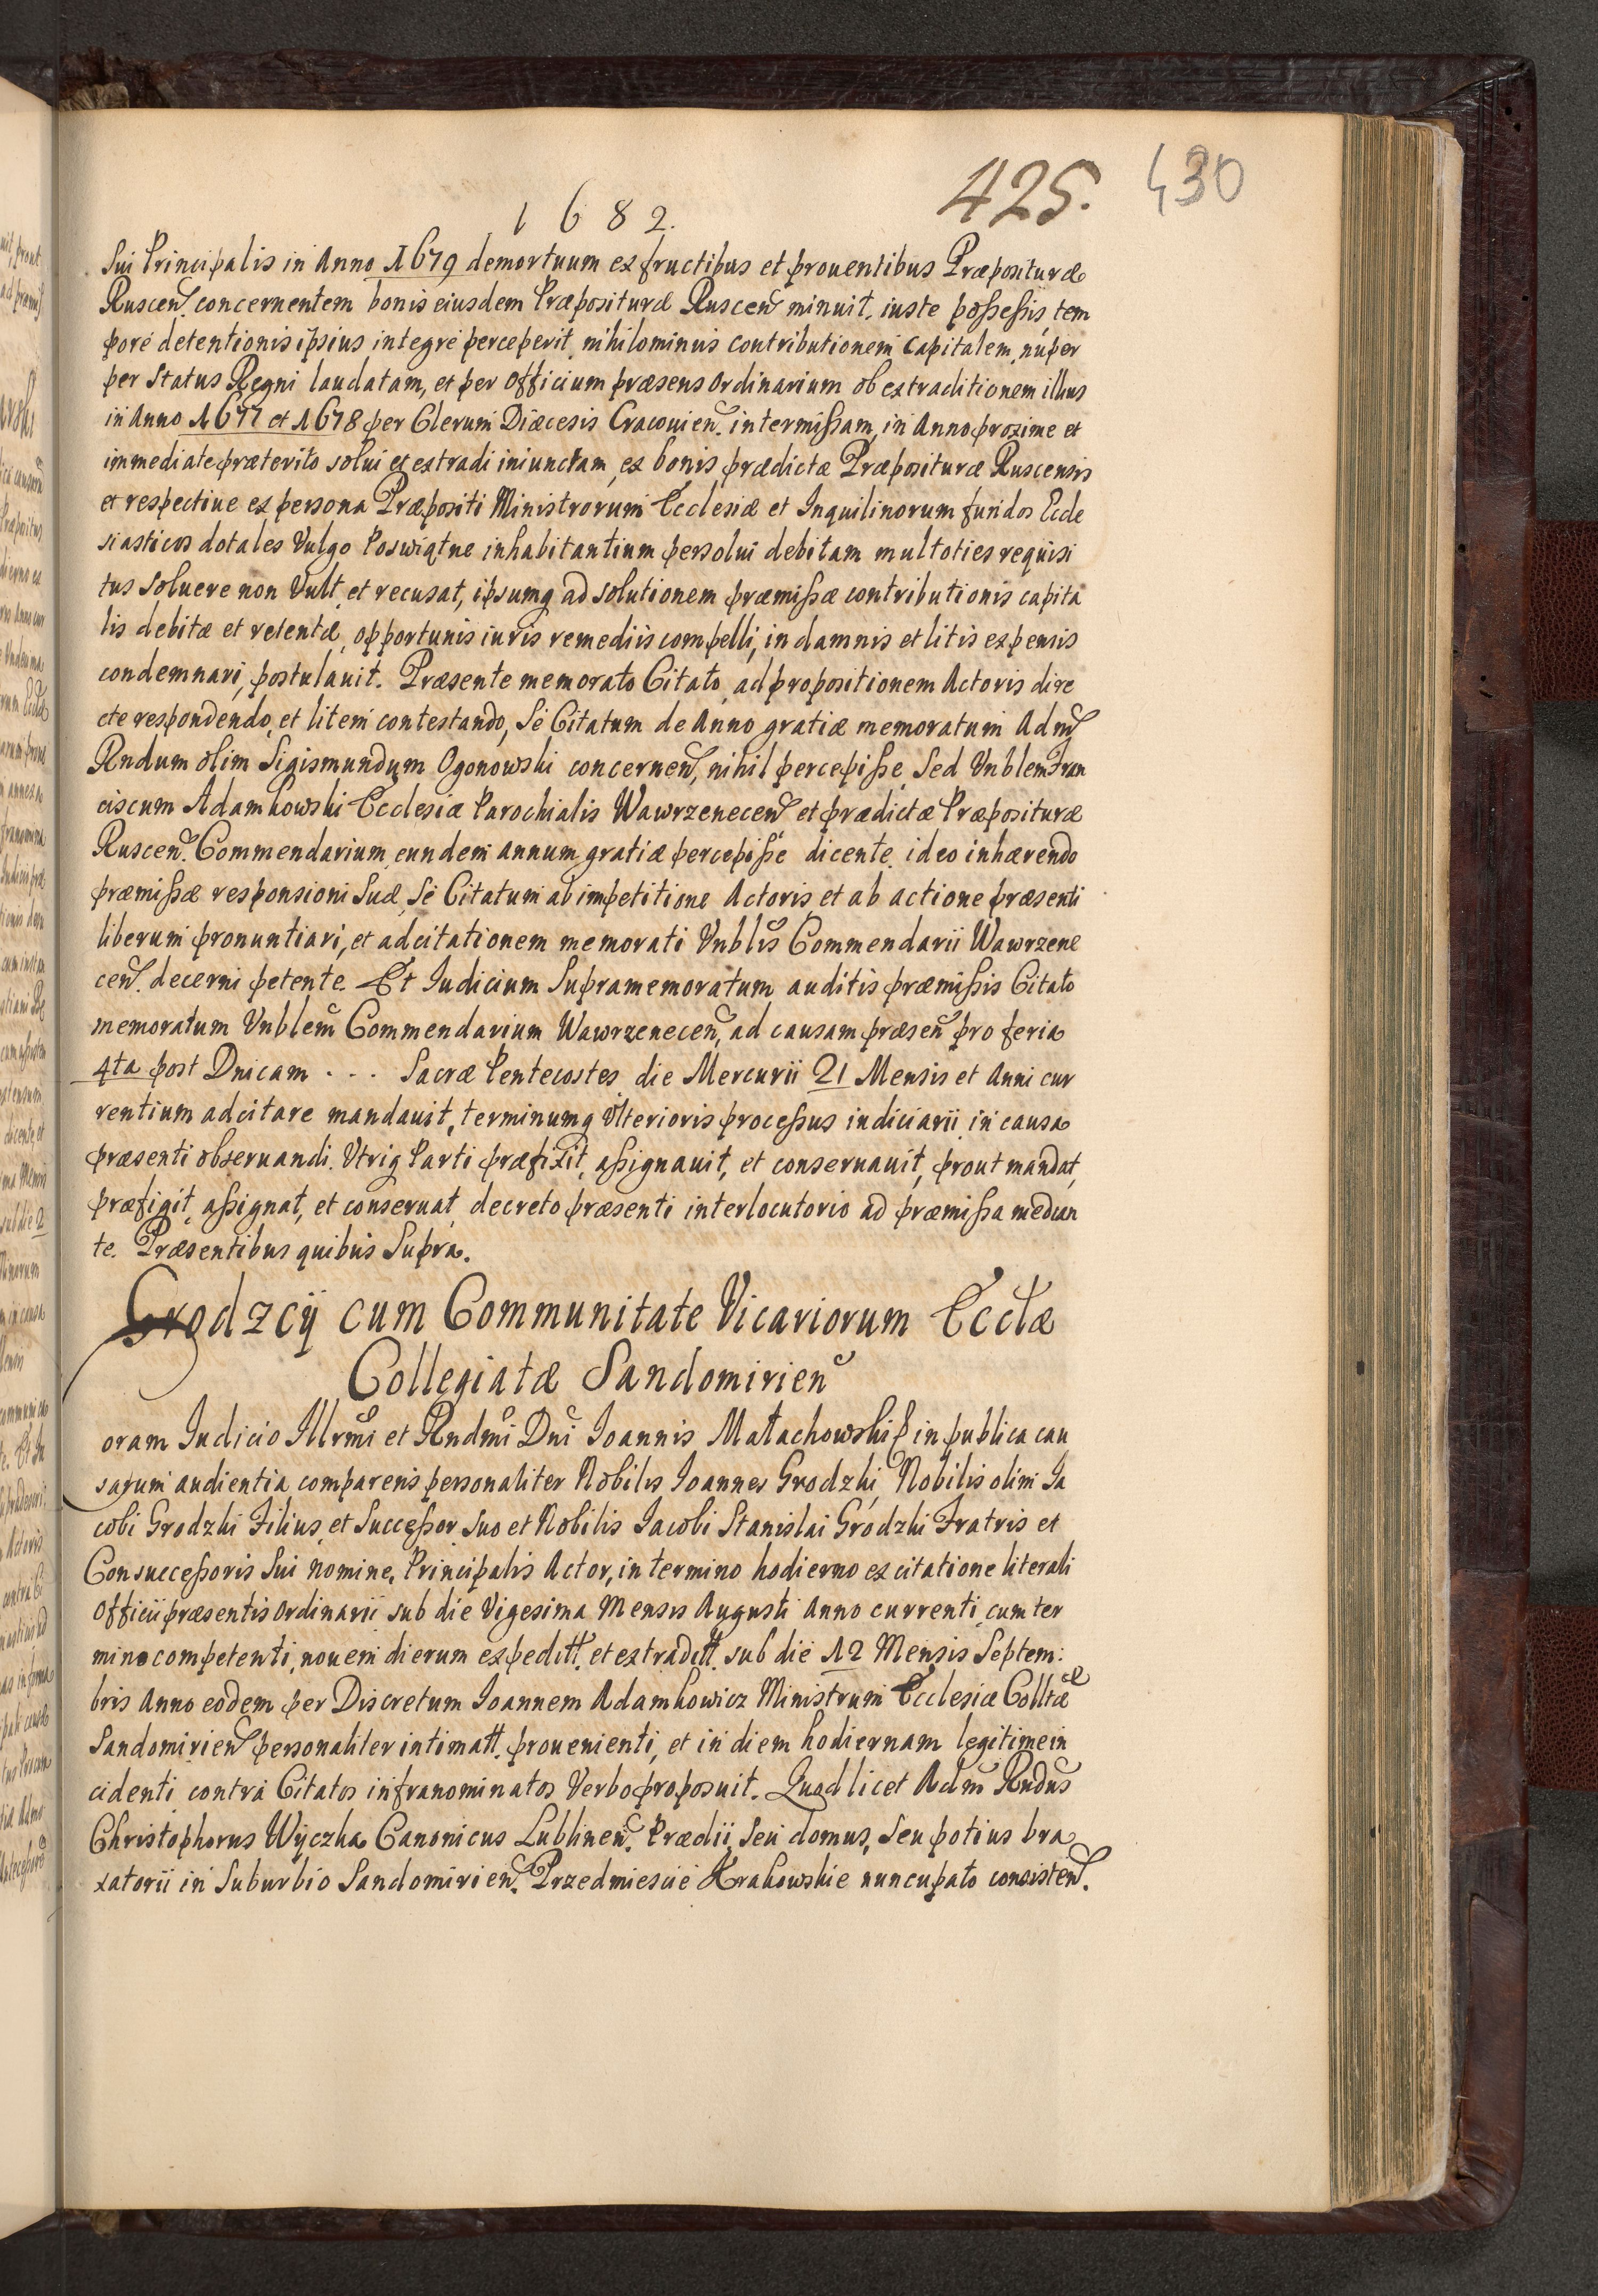 1682.
425.
430
Sui Principalis in Anno 1679 demortuum ex fructibus et prouentibus Præposituræ
Ruscen. concernentem bonis eiusdem Præposituræ Ruscen minuit. iuste possessis, tem
pore detentionis ipsius integre perceperit, nihilominus contributionem Capitalem, nuper
per Status Regni laudatam, et per Officium præsens Ordinarium ob extraditionem illius
in Anno 1677 et 1678 per Clerum Diæcesis Cracouien. intermissam, in Anno proxime et
immediate præterito solui et extradi iniunctam, ex bonis prædictæ Præposituræ Ruscensis
et respectiue ex persona Præpositi Ministrorum Ecclesiæ et Inquilinorum fundos Eccle
siasticos dotales Vulgo Poswiątne inhabitantium persolui debitam multoties requisi
tus soluere non Vult, et recusat, ipsumq ad solutionem præmissæ contributionis capita
lis debitæ et retentæ, opportunis iuris remediis compelli, in damnis et litis expensis
condemnari, postulauit. Præsente memorato Citato, ad propositionem Actoris dire
cte respondendo, et litem contestando, Se Citatum de Anno gratiæ memoratum Adm
Rndum olim Sigismundum Ogonowski concernen, nihil percepisse, Sed Vnblem Fran
ciscum Adamkowski Ecclesiæ Parochialis Wawrzenecen et prædictæ Præposituræ
Ruscen. Commendarium eundem annum gratiæ percepisse dicente, ideo inhærendo
præmissæ responsioni Suæ, Se Citatum ab impetitione Actoris et ab actione præsenti
liberum pronuntiari, et adcitationem memorati Vnblis Commendarii Wawrzene
cen. decerni petente. Et Iudicium Supramemoratum auditis præmissis Citato
memoratum Vnblem Commendarium Wawrzenecen, ad causam præsen pro feria
4ta post Dnicam . . . Sacræ Pentecostes die Mercurii 21 Mensis et Anni cur
rentium adcitare mandauit, terminumq Vlterioris processus iudiciarii in causa
præsenti obseruandi. Vtriq Parti præfixit, assignauit, et conseruauit, prout mandat,
præfigit, assignat, et conseruat, decreto præsenti interlocutorio ad præmissa median
te. Præsentibus quibus Supra.
Grodzcÿ cum Communitate Vicariorum Ecclæ
Collegiatæ Sandomirien
Coram Iudicio Illrmi et Rndmi Dni Ioannis Małachowski in publica cau
sarum audientia comparens personaliter Nobilis Ioannes Grodzki, Nobilis olim Ia
cobi Grodzki Filius, et Successor Suo et Nobilis Iacobi Stanislai Grodzki Fratris et
Consuccessoris Sui Nomine, Principalis Actor, in termino hodierno ex citatione literali
Officii præsentis Ordinarii sub die Vigesima Mensis Augusti Anno currenti cum ter
mino competenti, nouem dierum expeditt. et extraditt. sub die 12 Mensis Septem:
bris Anno eodem per Discretum Ioannem Adamkowicz Ministrum Ecclesiæ Colltæ
Sandomirien personaliter intimatt. prouenienti, et in diem hodiernam legitime in
cidenti contra Citatos infranominatos Verbo proposuit. Quod licet Adm Rndus
Christophorus Wÿczka Canonicus Lublinen. Prædii, seu domus, seu potius bra
xatorii in Suburbio Sandomirien. Przedmiescie Krakowskie nuncupato consisten.